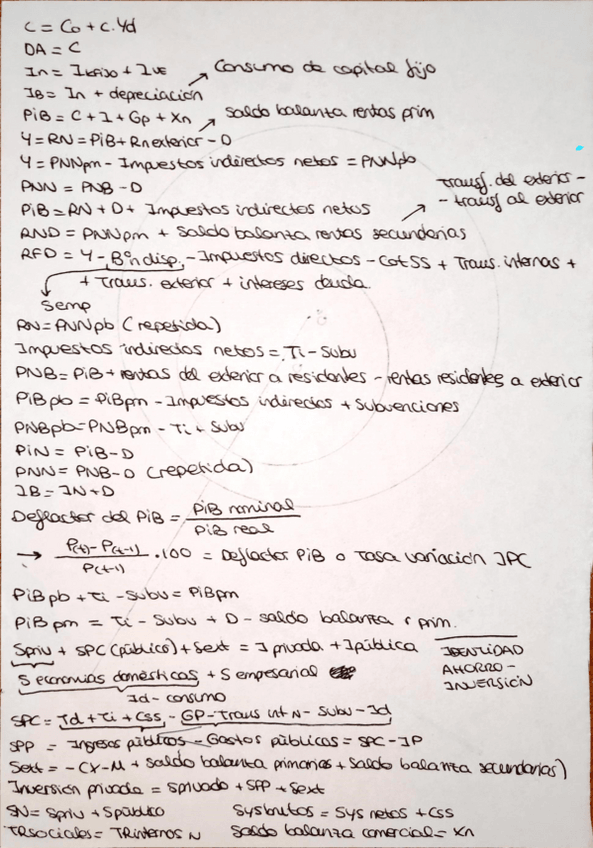 C = Co + c.Yd
DA = C
In = Ikfijo + Ive
IB = In + depreciación → Consumo de capital fijo
PiB = C + I + Gp + Xn
Y = RN = PiB + Rnexterior - D → Saldo balanza rentas prim
Y = PNNpm - Impuestos indirectos netos = PNNpb
PNN = PNB - D
PiB = RN + D + Impuestos indirectos netos
RND = PNNpm + Saldo balanza rentas secundarias → transf. del exterior - - transf al exterior
RFD = Y - Bº indisp. - Impuestos directos - Cot SS + Trans. internas +
+ Trans. exterior + intereses deuda.
Semp
RN = PNNpb (repetida)
Impuestos indirectos netos = Ti - Subu
PNB = PiB + rentas del exterior a residentes - rentas residentes a exterior
PiBpb = PiBpm - Impuestos indirectos + Subvenciones
PNBpb = PNBpm - Ti + Subu
PiN = PiB - D
PNN = PNB - D (repetida)
IB = IN + D
Deflactor del PiB = PiB nominal / PiB real
→ P(t) - P(t-1) / P(t-1) . 100 = Deflactor PiB o Tasa variación IPC
PiBpb + Ti - Subu = PiBpm
PiBpm = Ti - Subu + D - saldo balanza r prim.
Spriv + SPC (público) + Sext = I privada + I pública
IDENTIDAD AHORRO - INVERSIÓN
S economías domésticas + S empresarial
Id - consumo
SPC = Td + Ti + Css - GP - Trans int N - Subu - Id
SPP = Ingresos públicos - Gastos públicos = SPC - IP
Sext = - (X - M + Saldo balanza primarias + Saldo balanza secundarias)
Inversión privada = Sprivado + SPP + Sext
SN = Spriv + Spúblico
Sys brutos = Sys netos + Css
TRsociales = TRinternas N
Saldo balanza comercial = Xn